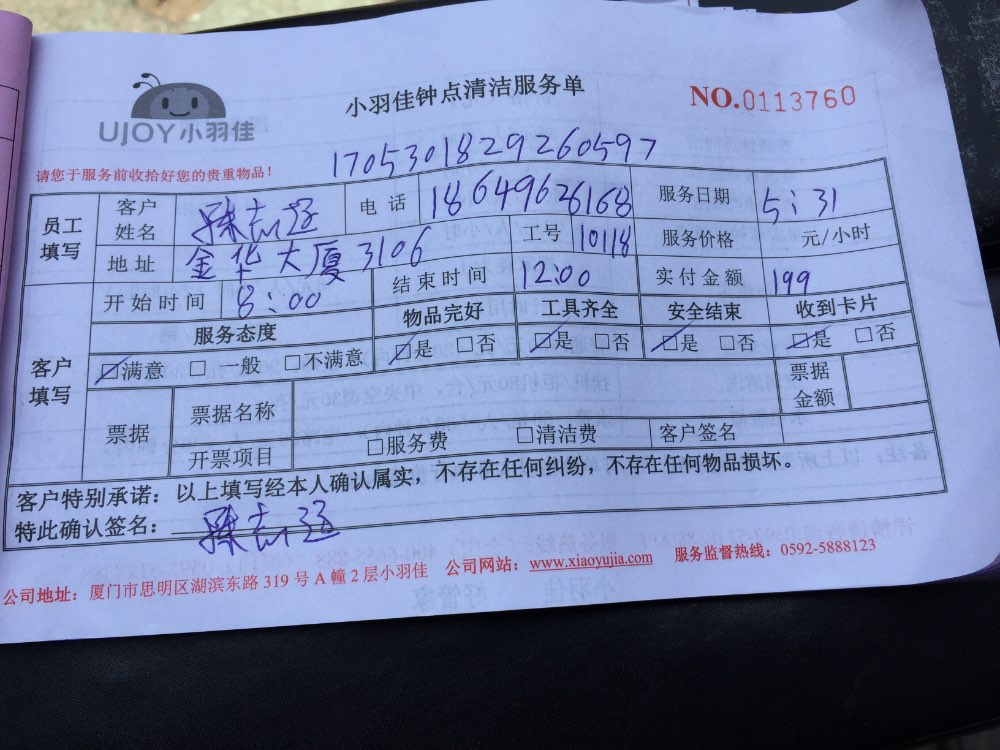 UJOY小羽佳
小羽佳钟点清洁服务单
NO.0113760
请您于服务前收拾好您的贵重物品!
1705301829260597
员工填写 客户姓名 陈志远 电话 18649626168 服务日期 5:31
地址 金华大厦3106 工号 10118 服务价格 元/小时
客户填写 开始时间 8:00 结束时间 12:00 实付金额 199
服务态度 物品完好 工具齐全 安全结束 收到卡片
☑满意 □一般 □不满意 ☑是 □否 ☑是 □否 ☑是 □否 ☑是 □否
票据 票据名称 票据金额
开票项目 □服务费 □清洁费 客户签名
客户特别承诺:以上填写经本人确认属实,不存在任何纠纷,不存在任何物品损坏。
特此确认签名:陈志远
公司地址:厦门市思明区湖滨东路319号A幢2层小羽佳 公司网站:www.xiaoyujia.com 服务监督热线:0592-5888123